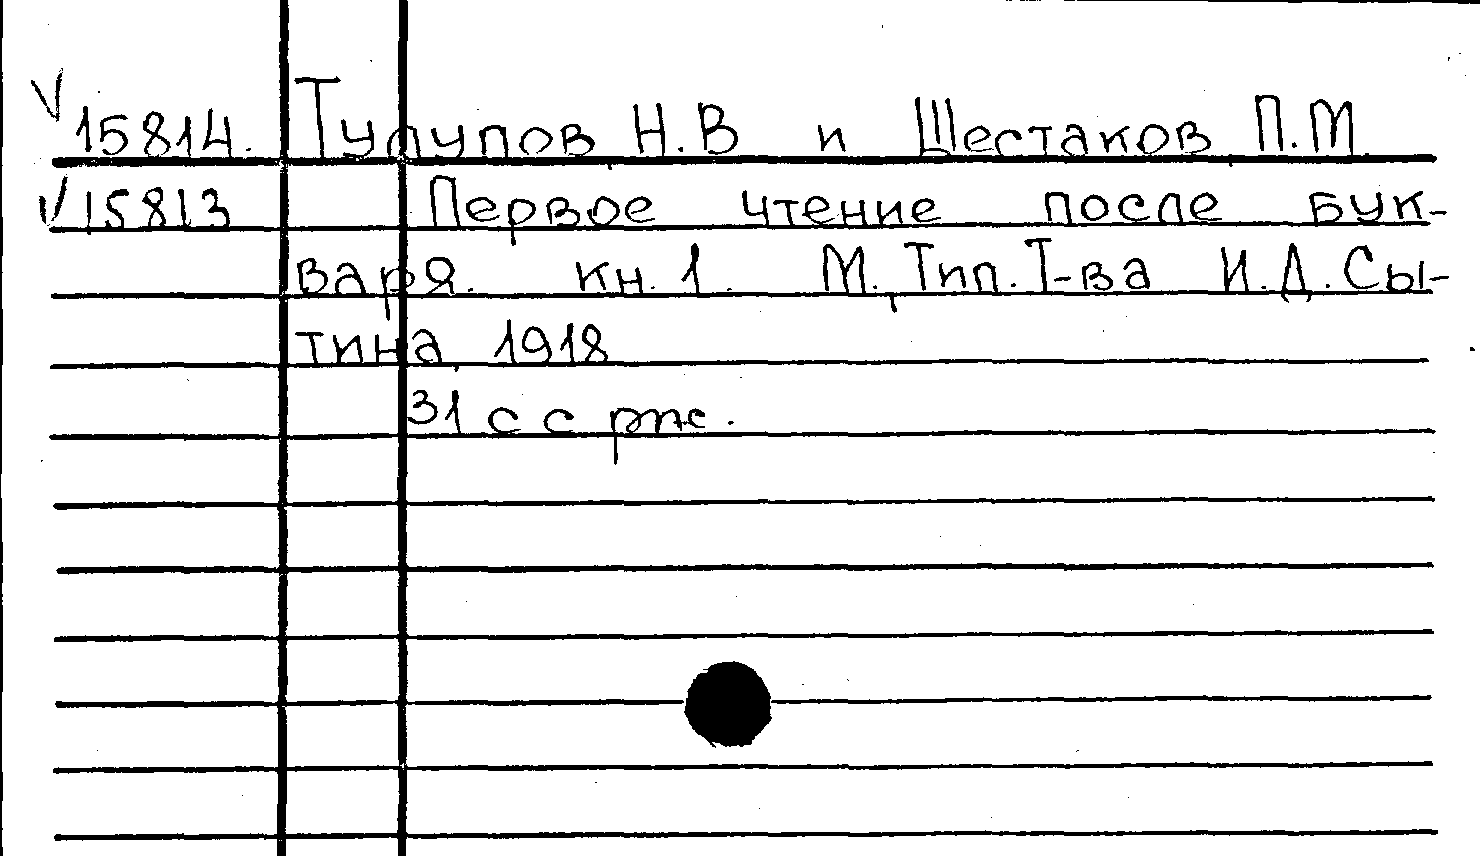 V 15814. Тулупов, Н.В и Шестаков, П.М.
V 15813 Первое чтение после бук-
варя. кн. 1. М., Тип. Т-ва И.Д.Сы-
тина, 1918
31 с с рис.